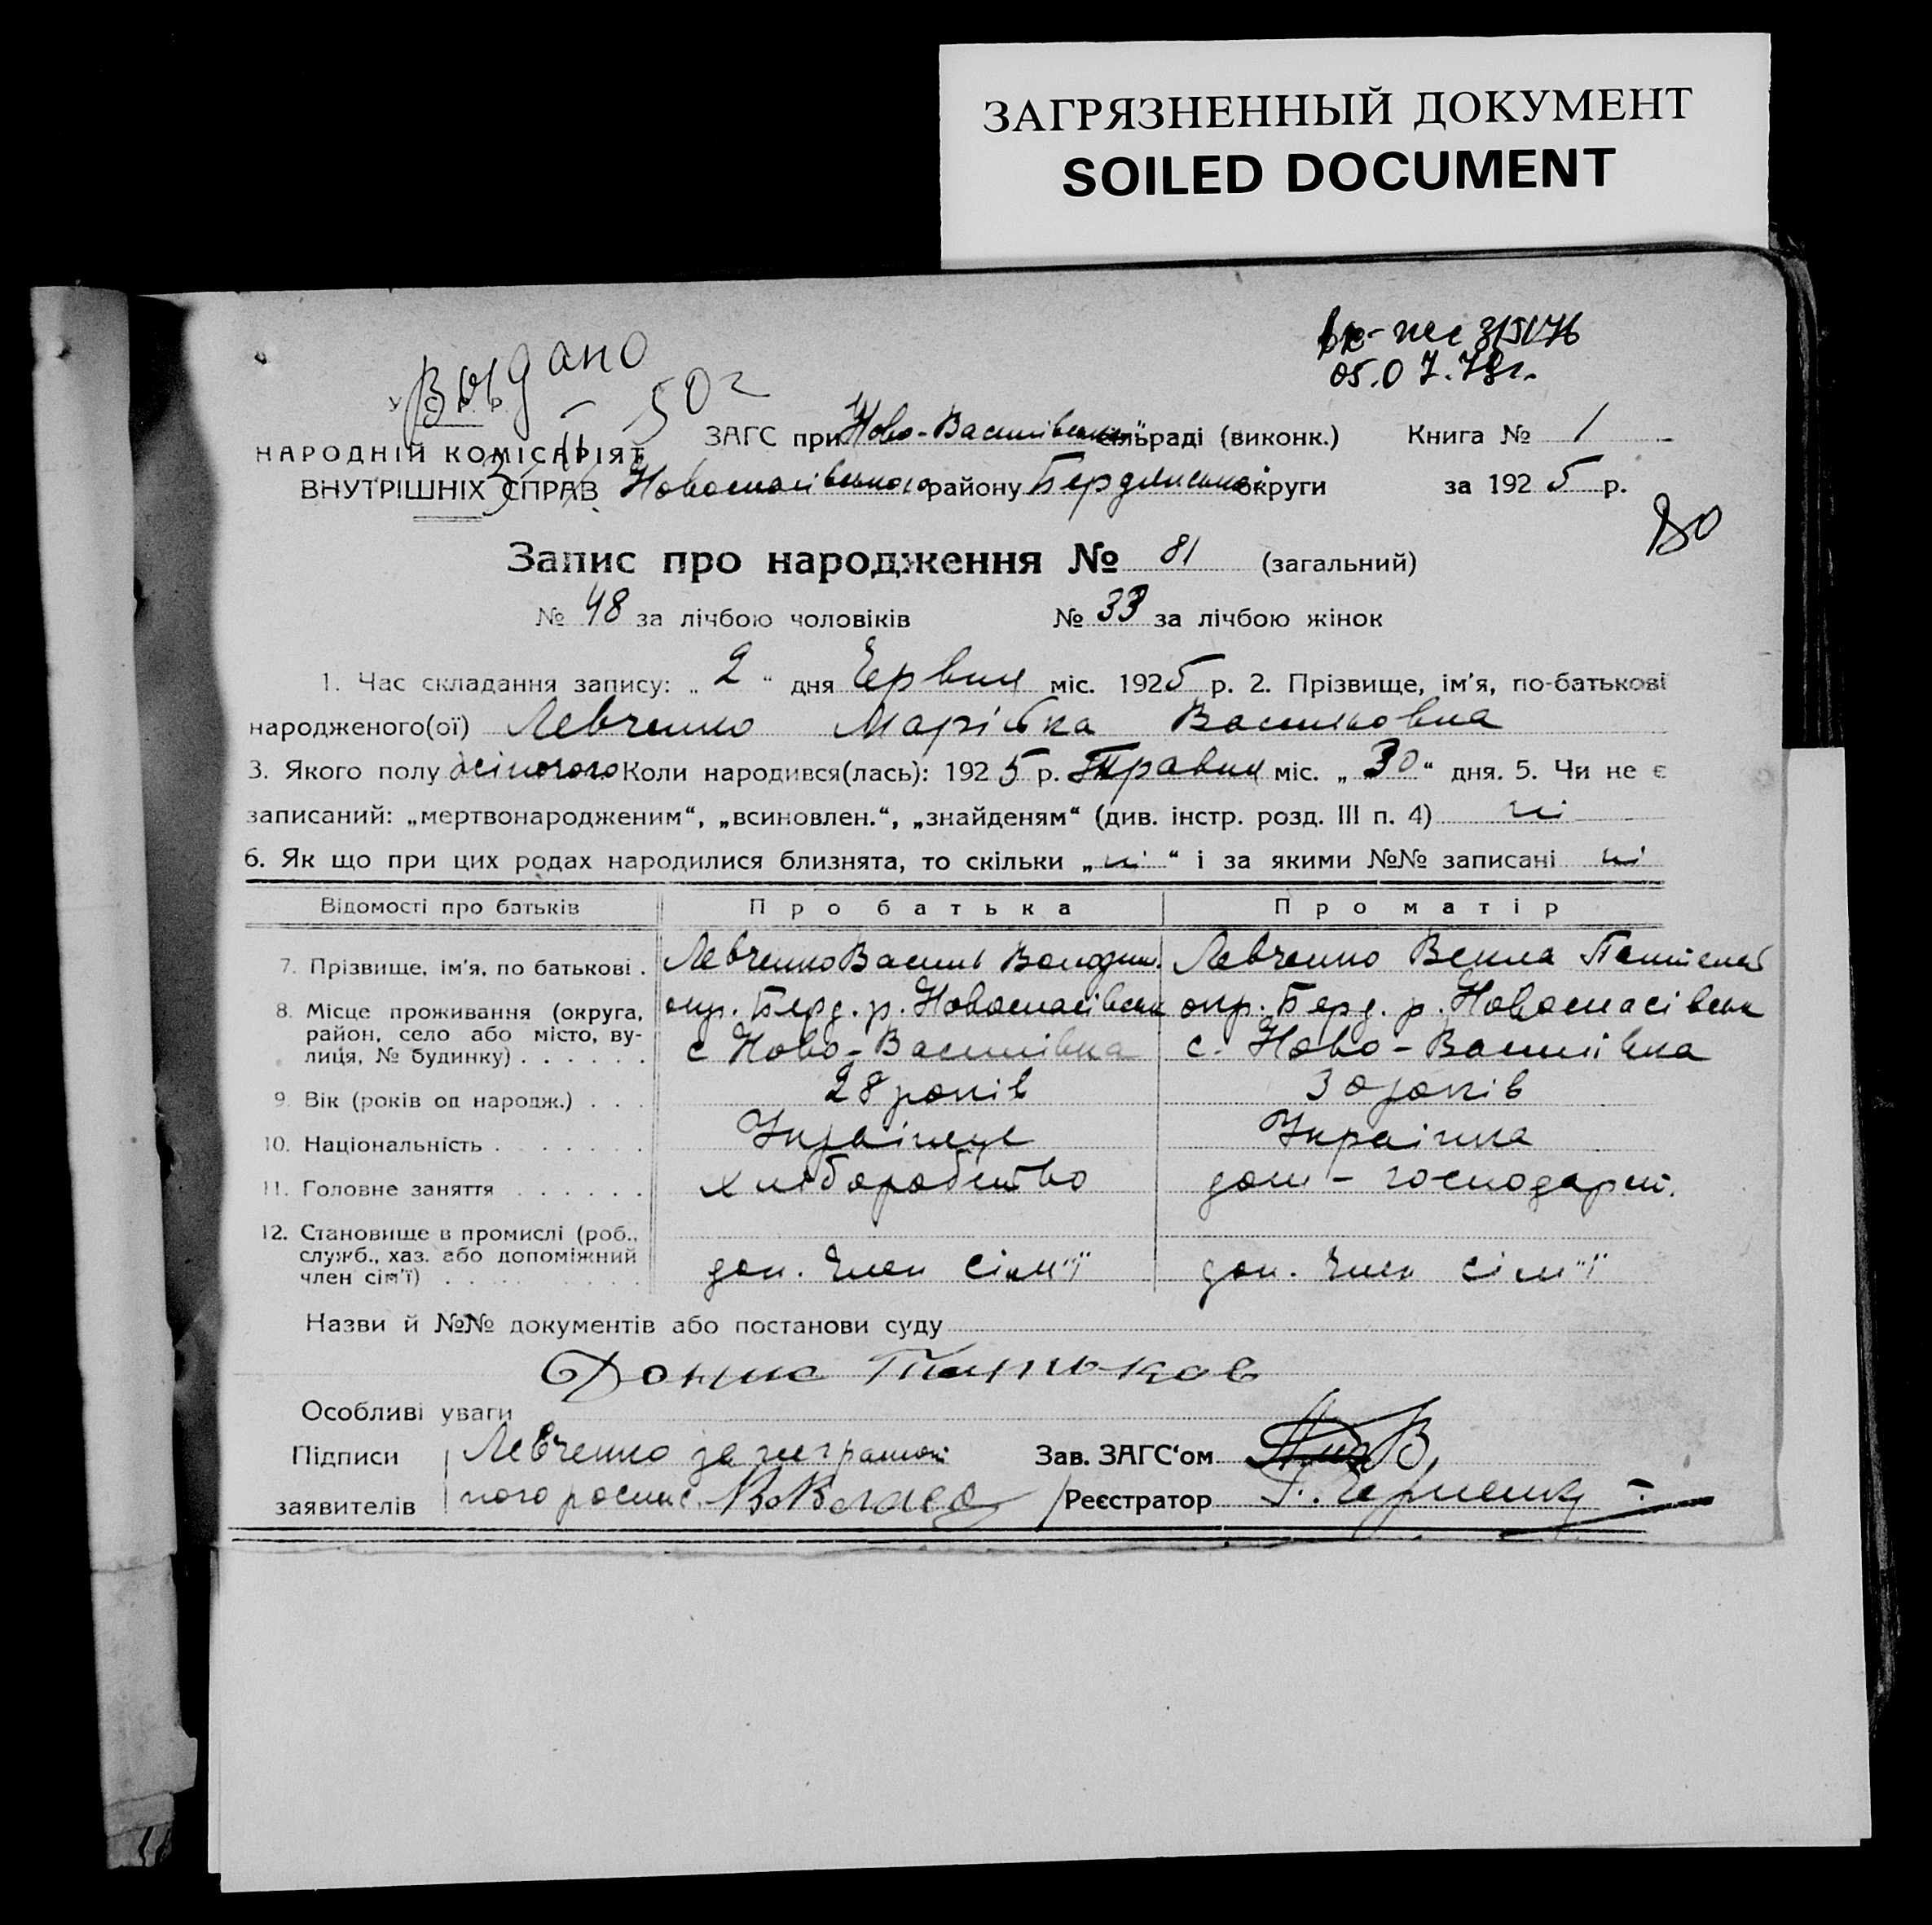 ЗАГРЯЗНЕННЫЙ ДОКУМЕНТ
SOILED DOCUMENT
05.07.78г.
Выдано
50г
У. С. Р. Р.
НАРОДНІЙ КОМІСАРІЯТ
ВНУТРІШНІХ СПРАВ
ЗАГС при Ново-Василівськ. сільраді (виконк.) Книга № 1
Новоспасівського району Бердянської округи за 1925 р.
80
Запис про народження № 81 (загальний)
№ 48 за лічбою чоловіків № 33 за лічбою жінок
1. Час складання запису: „ 2 “ дня Червня міс. 1925 р. 2. Прізвище, ім'я, по-батькові
народженого(ої) Левченко Марійка Васильовна
3. Якого полу жіночого Коли народився(лась): 1925 р. Травня міс. „ 30 “ дня. 5. Чи не є
записаний: „мертвонародженим“, „всиновлен.“, „знайденям“ (див. інстр. розд. III п. 4) ні
6. Як що при цих родах народилися близнята, то скільки „ ні “ і за якими №№ записані ні
Відомості про батьків Про батька Про матір
7. Прізвище, ім'я, по батькові . Левченко Василь Володим. Левченко Векла
8. Місце проживання (округа, район, село або місто, вулиця, № будинку) . . . . . .
окр. Берд. р. Новоспасівськ окр. Берд. р. Новоспасівськ
с Ново-Василівка с. Ново-Василівка
9. Вік (років од народж.) . . . 28 років 30 років
10. Національність . . . . . . . Українец Українка
11. Головне заняття . . . . . . хліборобство дом-господарст.
12. Становище в промислі (роб., служб., хаз. або допоміжний член сім'ї) . . . . . . . . .
доп. член сімм"ї доп. член сім"ї
Назви й №№ документів або постанови суду
Особливі уваги
Підписи Левченко за неграмот Зав. ЗАГС'ом
заявителів ного роспис. Реєстратор